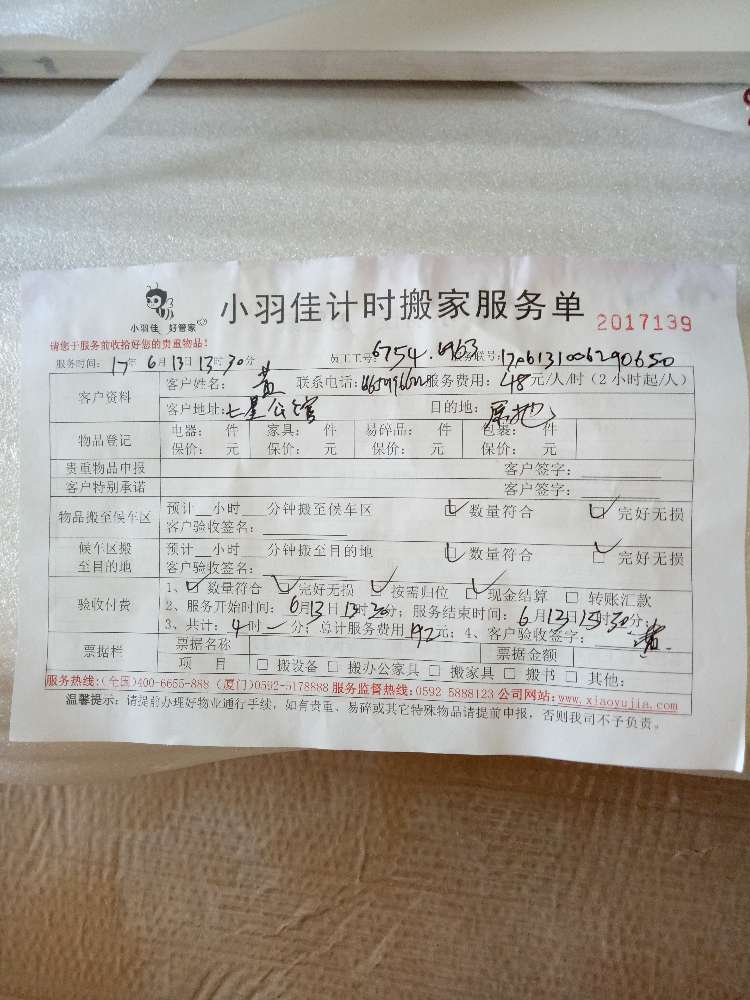 小羽佳 好管家
小羽佳计时搬家服务单
2017139
请您于服务前收拾好您的贵重物品!
服务时间: 17年 6月13日13时30分 员工工号: 6754.6963 服务联号: 1706131006290650
客户资料 客户姓名: 黄 联系电话: 服务费用: 48元/人/时(2小时起/人)
客户地址: 七星公馆 目的地:
物品登记 电器: 件 家具: 件 易碎品: 件 包裹: 件
保价: 元 保价: 元 保价: 元 保价: 元
贵重物品申报 客户签字:
客户特别承诺 客户签字:
物品搬至候车区 预计__小时__分钟搬至候车区 ☑数量符合 ☑完好无损
客户验收签名:
候车区搬至目的地 预计__小时__分钟搬至目的地 ☑数量符合 ☑完好无损
客户验收签名:
验收付费 1、☑数量符合 ☑完好无损 ☑按需归位 ☑现金结算 □转账汇款
2、服务开始时间: 6月13日13时30分; 服务结束时间: 6月13日15时30分;
3、共计: 4时一分; 总计服务费用192元; 4、客户验收签字: 黄
票据栏 票据名称 票据金额
项 目 □搬设备 □搬办公家具 □搬家具 □搬书 □其他:
服务热线:(全国)400-6655-888 (厦门)0592-5178888 服务监督热线:0592 5888123 公司网站:www.xiaoyujia.com
温馨提示: 请提前办理好物业通行手续, 如有贵重、易碎或其它特殊物品请提前申报, 否则我司不予负责。